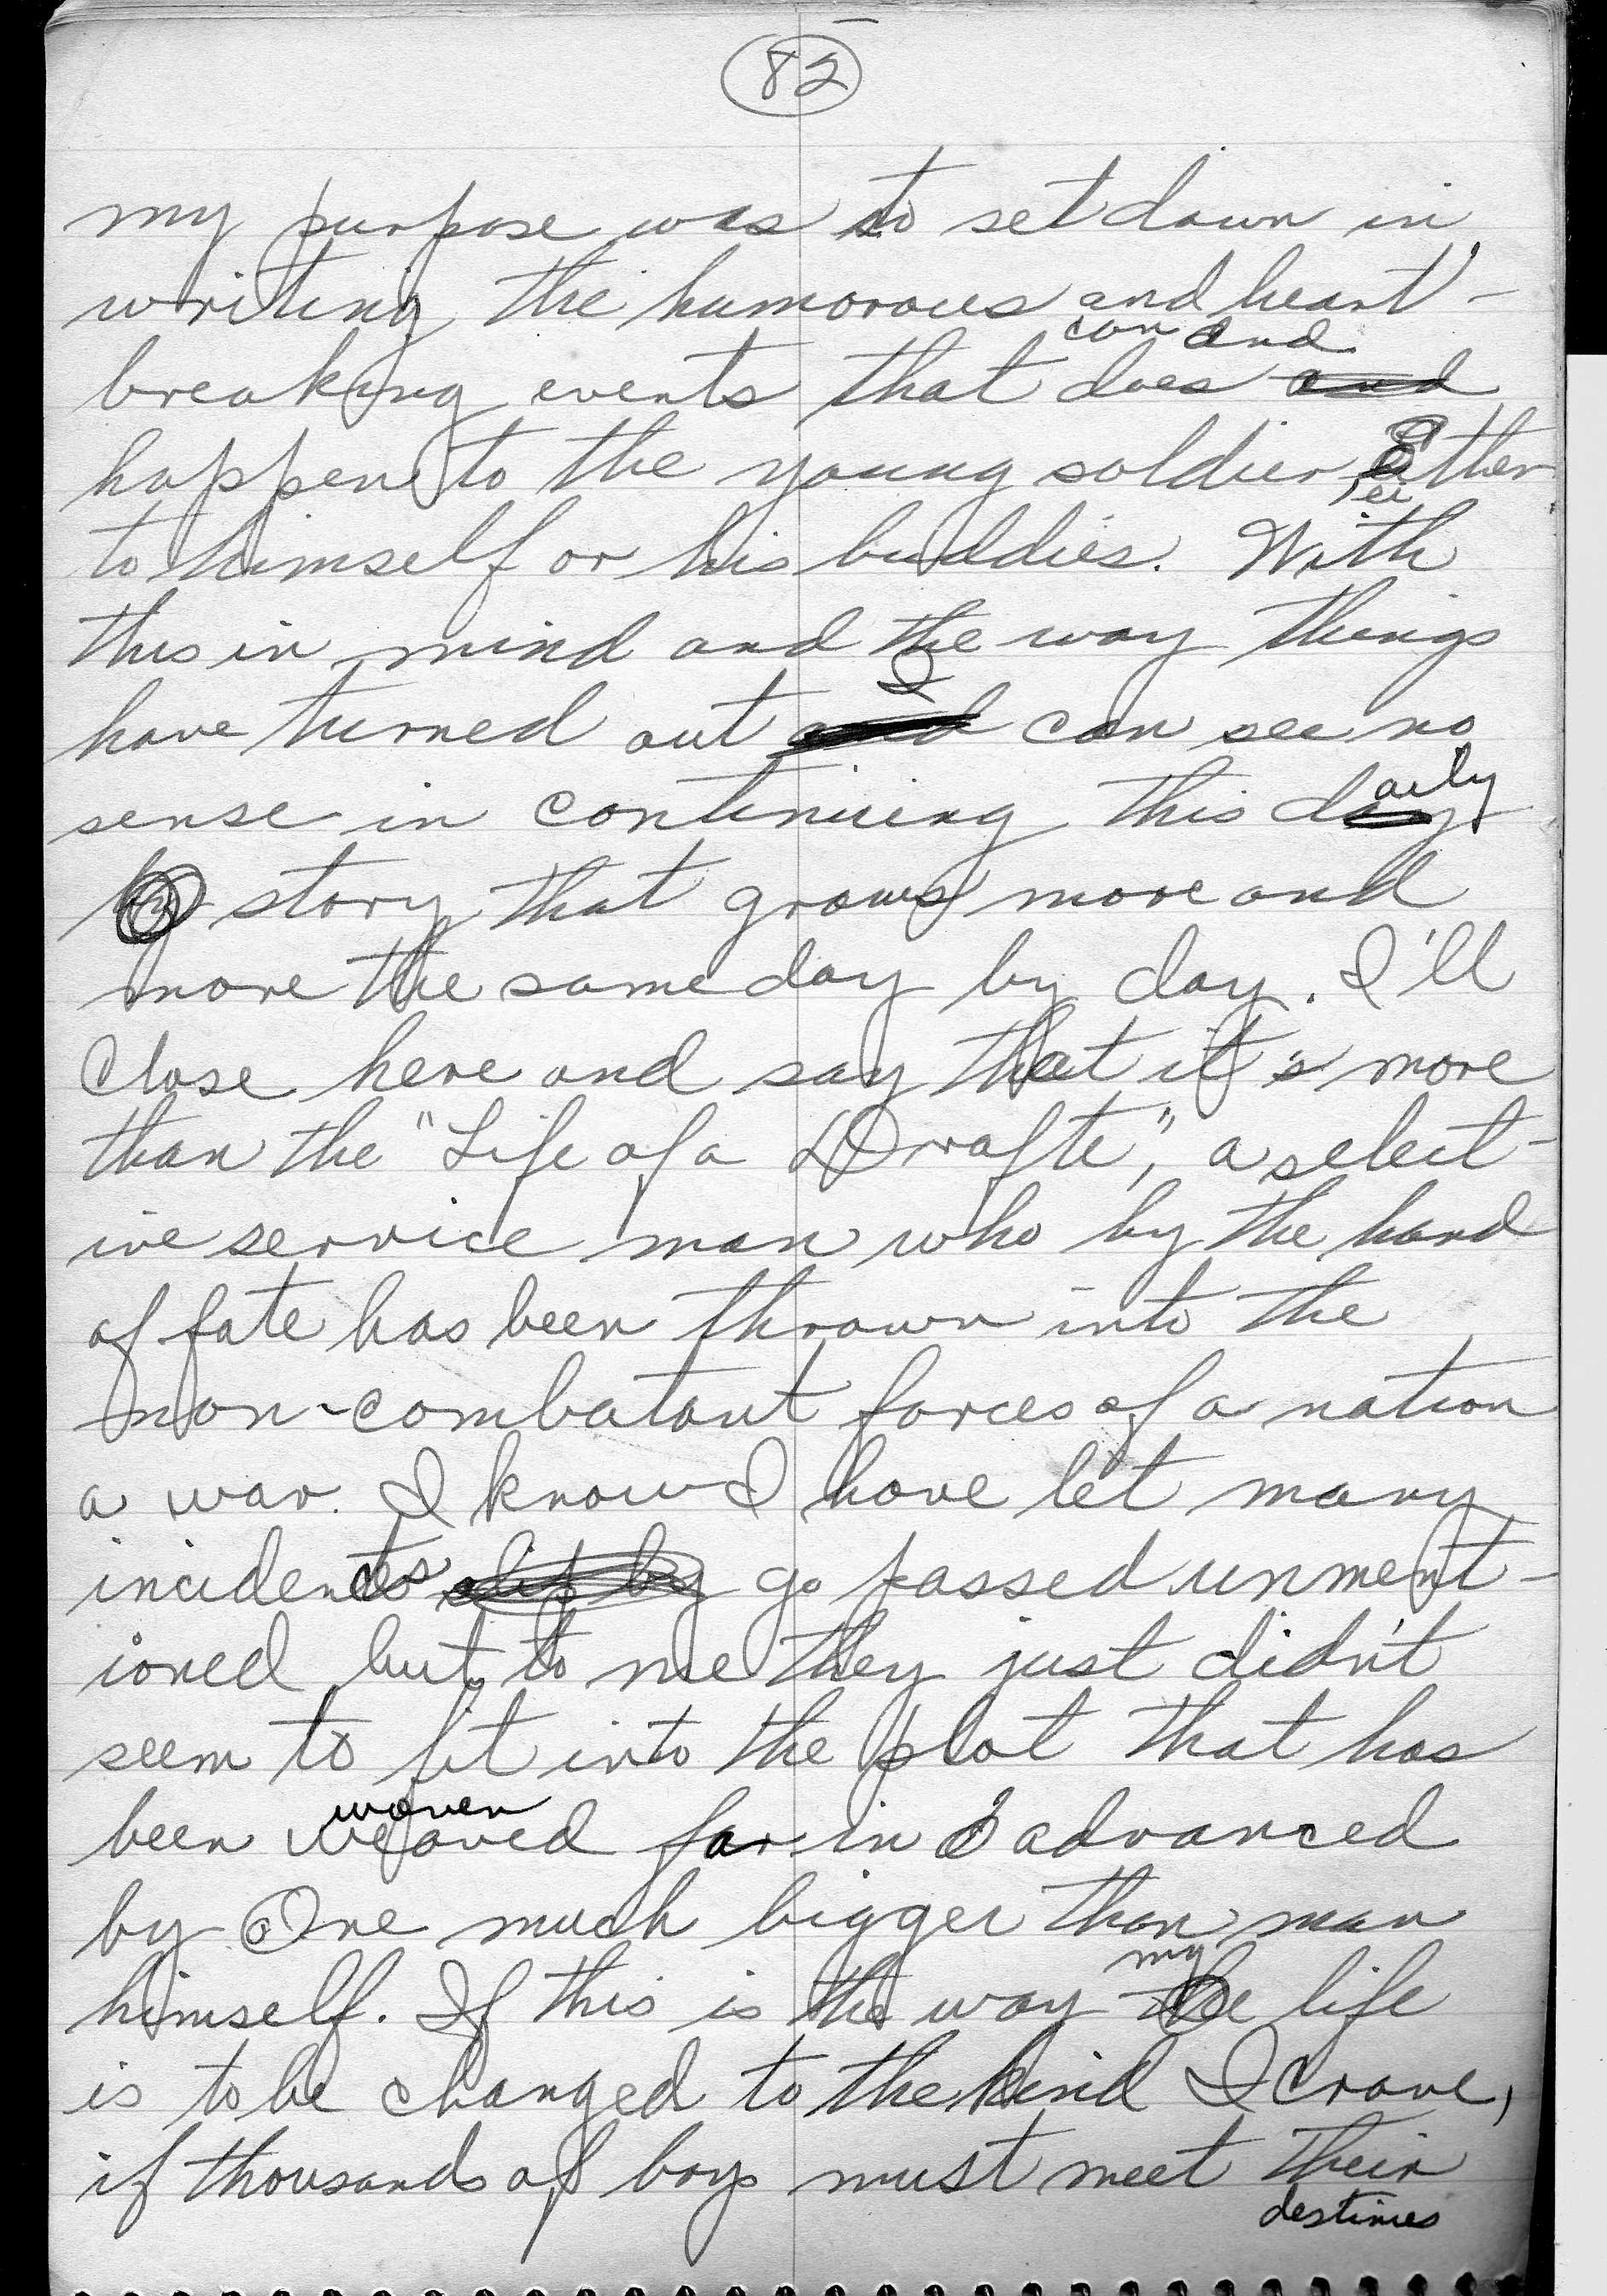 82
my purpose was to set down in
writing the humorous and heart-
can and
breaking events that does and
happen to the young soldier either
to himself or his buddies. With
this in mind and the way things
I
have turned out and can see no
sense in continuing this daily
by story that grows more and
more the same day by day. I'll
close here and say that it's more
than the "Life of a Drafte", a select-
ive service man who by the hand
of fate has been thrown into the
non-combatant forces of a nation
a war. I know I have let many
incidents slip by go passed unment-
ioned but to me they just didn't
seem to fit into the plot that has
woven
been weaved far in advanced
by One much bigger than man
my
himself. If this is the way the life
is to be changed to the kind I crave,
if thousands of boys must meet their
destinies